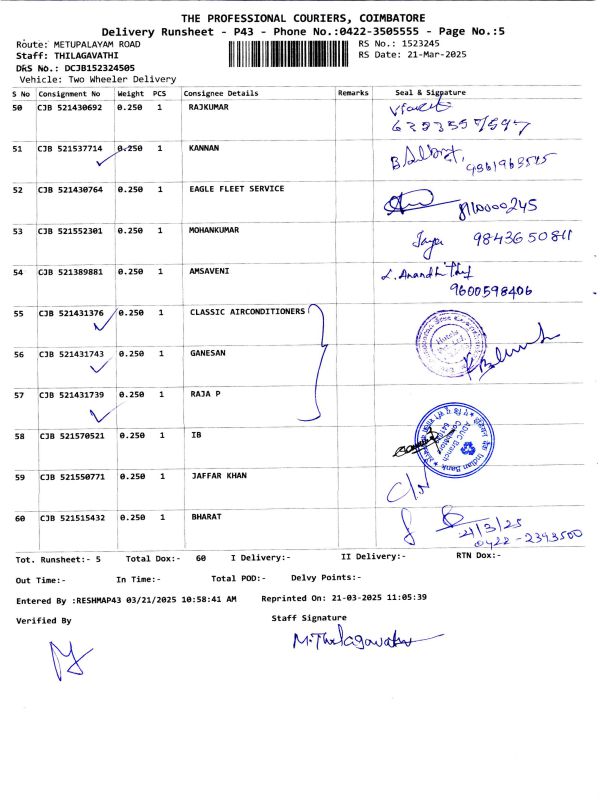 THE PROFESSIONAL COURIERS, COIMBATORE
Delivery Runsheet - P43 - Phone No.:0422-3505555 - Page No.:5
Route: METUPALAYAM ROAD RS No.: 1523245
Staff: THILAGAVATHI RS Date: 21-Mar-2025
DRS No.: DCJB152324505
Vehicle: Two Wheeler Delivery
S No Consignment No Weight PCS Consignee Details Remarks Seal & Signature
50 CJB 521430692 0.250 1 RAJKUMAR
51 CJB 521537714 0.250 1 KANNAN
52 CJB 521430764 0.250 1 EAGLE FLEET SERVICE
8110000245
53 CJB 521552301 0.250 1 MOHANKUMAR
Jaya 9843650811
54 CJB 521389881 0.250 1 AMSAVENI
9600598406
55 CJB 521431376 0.250 1 CLASSIC AIRCONDITIONERS
56 CJB 521431743 0.250 1 GANESAN
57 CJB 521431739 0.250 1 RAJA P
58 CJB 521570521 0.250 1 IB
Indian Bank
59 CJB 521550771 0.250 1 JAFFAR KHAN
C/N
60 CJB 521515432 0.250 1 BHARAT
21/3/25
0422-2393500
Tot. Runsheet:- 5 Total Dox:- 60 I Delivery:- II Delivery:- RTN Dox:-
Out Time:- In Time:- Total POD:- Delvy Points:-
Entered By :RESHMAP43 03/21/2025 10:58:41 AM Reprinted On: 21-03-2025 11:05:39
Verified By Staff Signature
M.Thilagavathi